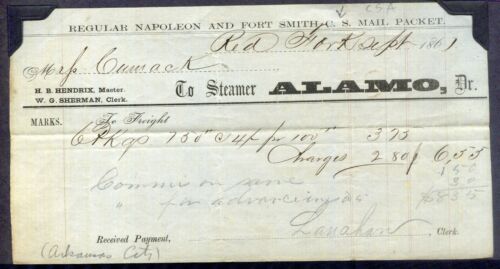 CSA
REGULAR NAPOLEON AND FORT SMITH C. S. MAIL PACKET.
Red Fork Sept 1861
Mess Cumack
H. B. HENDRIX, Master.
W. G. SHERMAN, Clerk.
To Steamer ALAMO, Dr.
MARKS. To Freight
6 Pkgs 750" @ 4 pr 100" 3 75
Charges 2 80 6,55
1 50
30
$8 35
Commis on same
" for advancing
Lanahan
Received Payment, Clerk.
(Arkansas City)